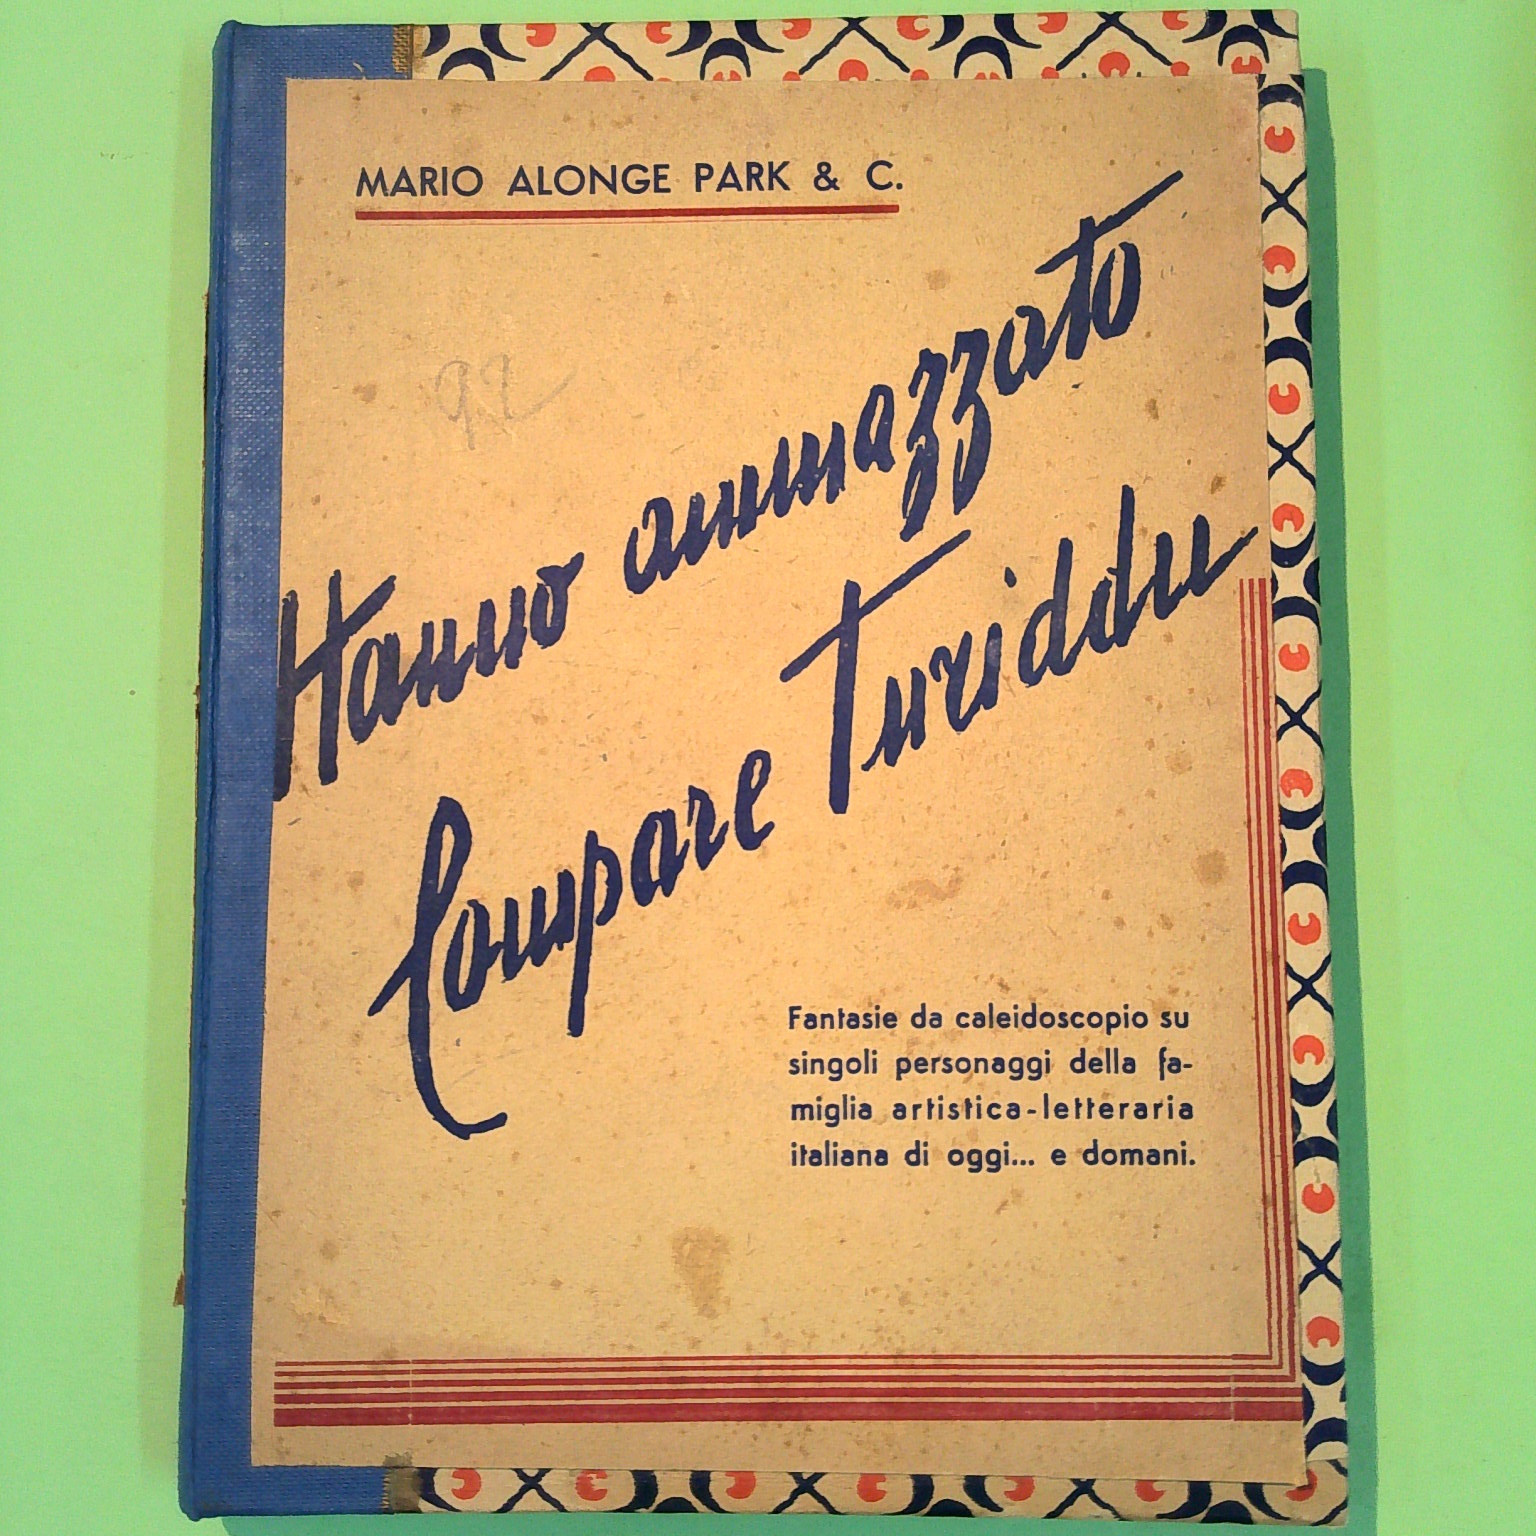 MARIO ALONGE PARK & C.
92
Hanno ammazzato
Compare Turiddu
Fantasie da caleidoscopio su
singoli personaggi della fa-
miglia artistica-letteraria
italiana di oggi... e domani.